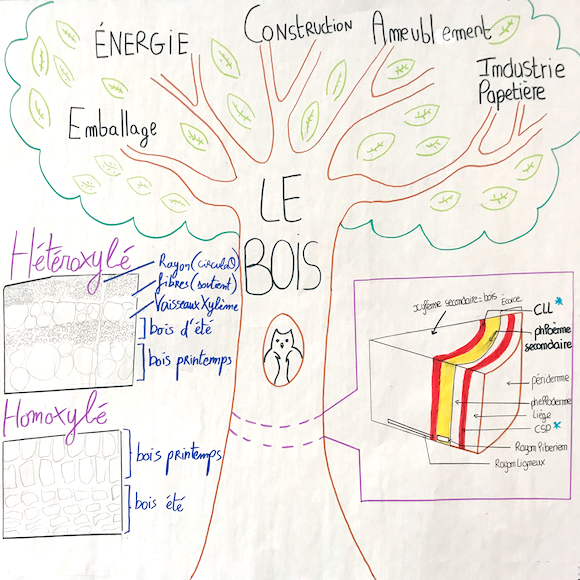 ÉNERGIE
Construction
Ameublement
Industrie
Papetière
Emballage
LE
BOIS
Hétéroxylé
fibres (soutient)
Vaisseaux Xylème
bois d'été
bois printemps
Homoxylé
bois printemps
bois été
xylème secondaire = bois
Ecorce
CLL *
phloème
secondaire
périderme
phelloderme
liège
CSP *
Rayon liberien
Rayon ligneux